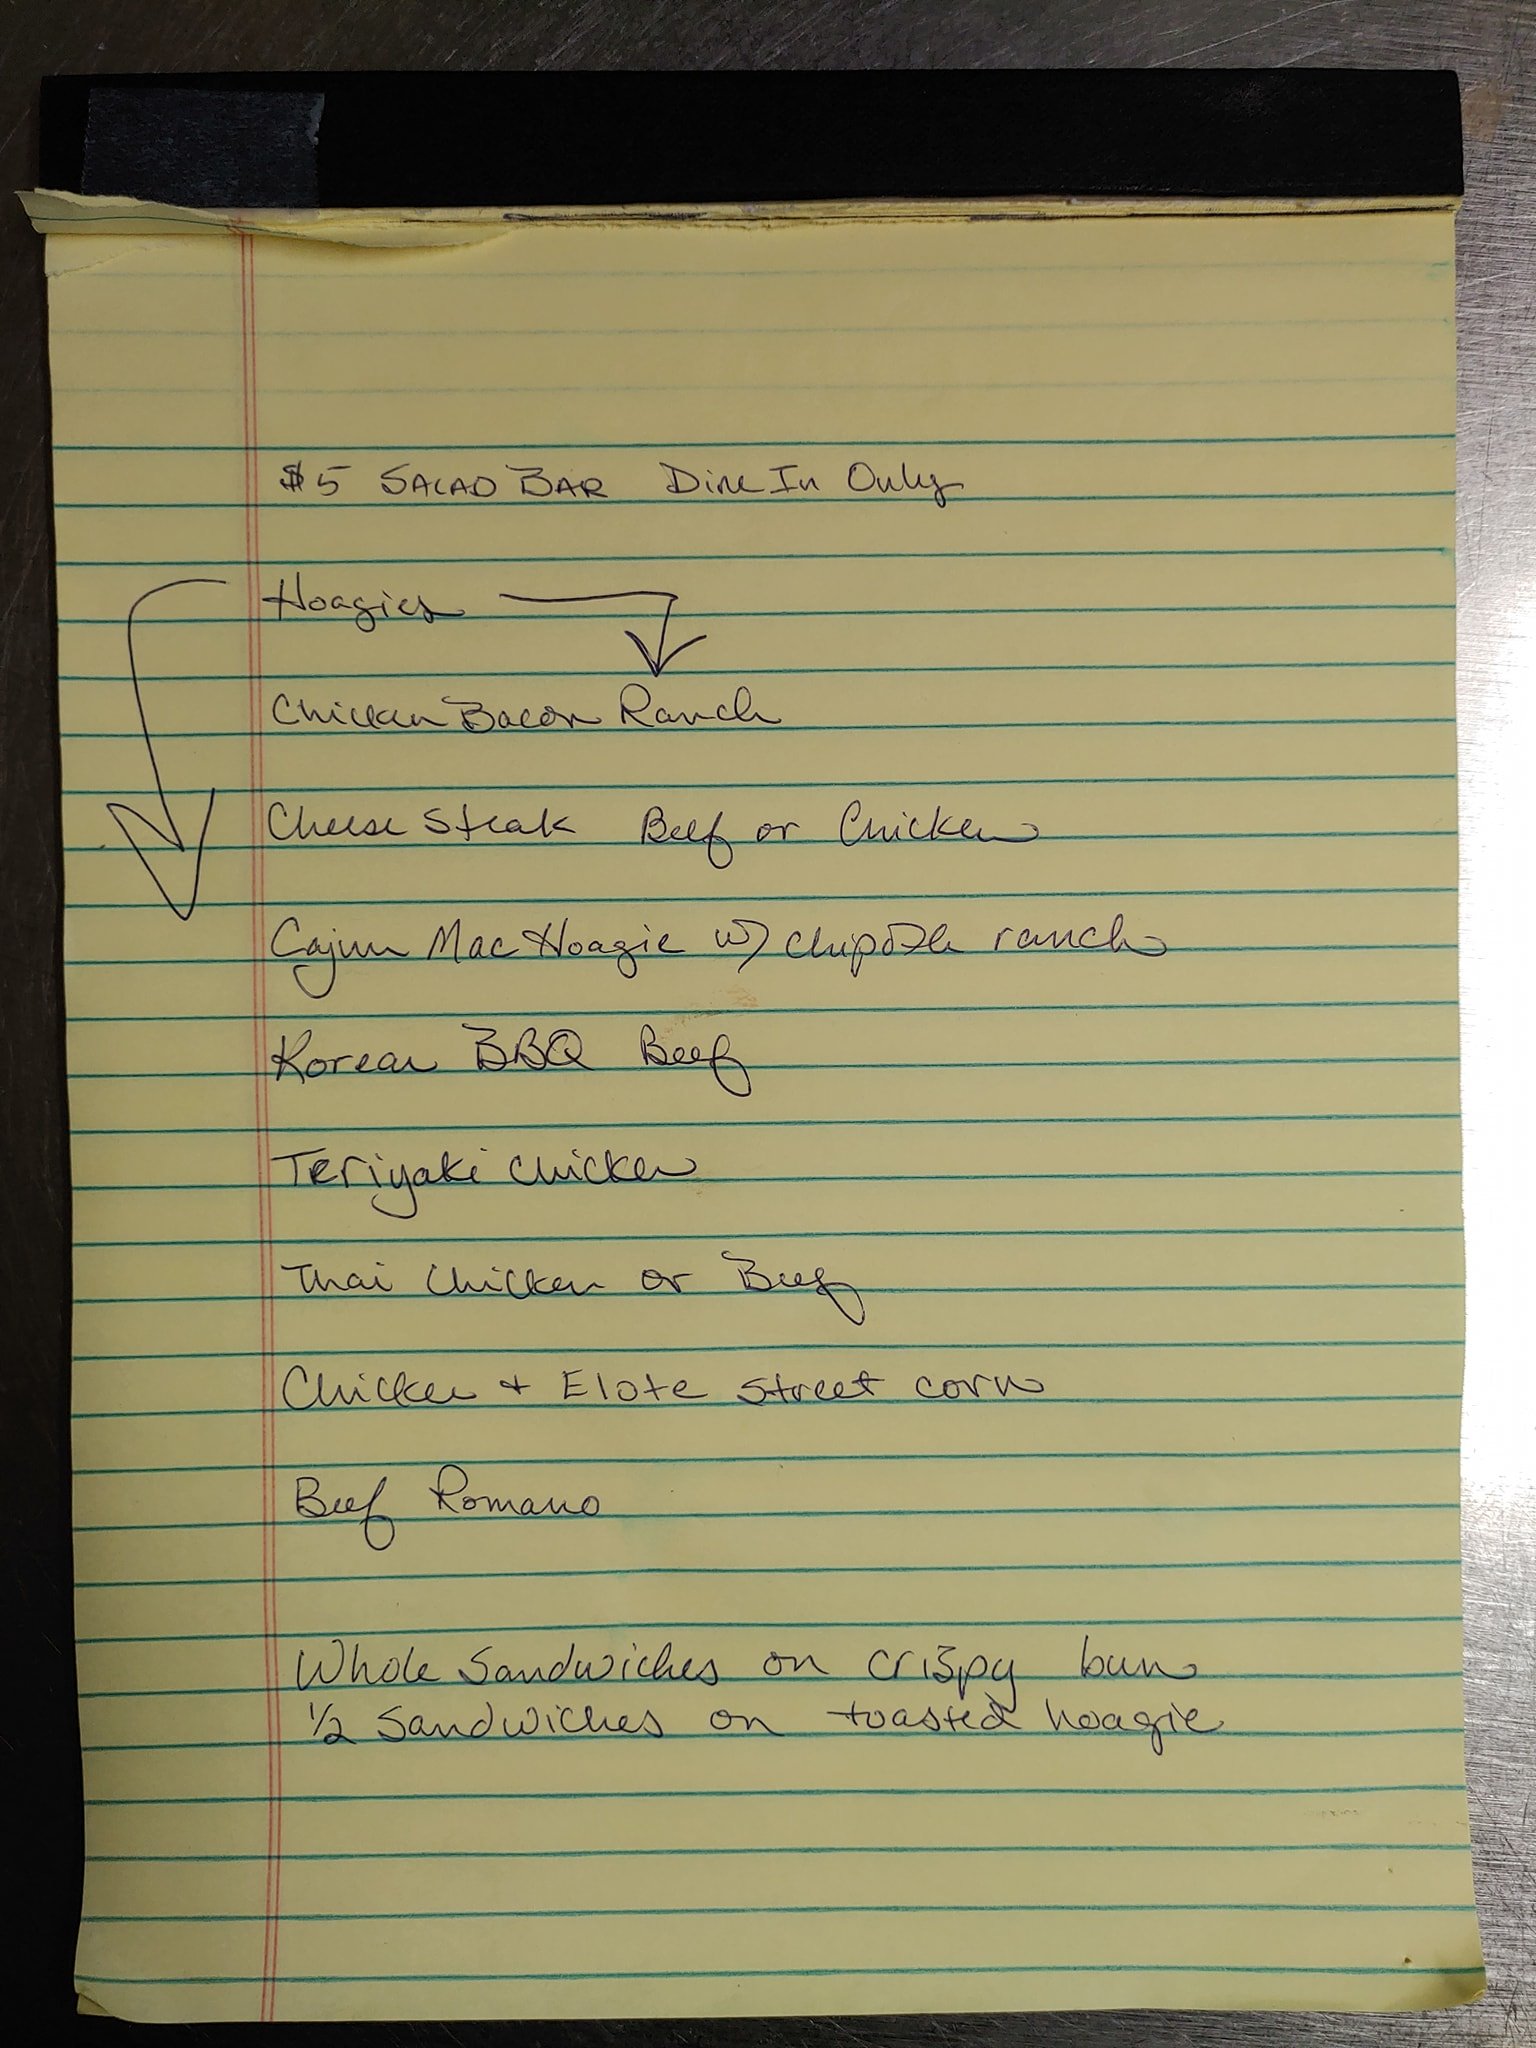 $5 SALAD BAR Dine In Only
Hoagies
Chicken Bacon Ranch
Cheese Steak Beef or Chicken
Cajun Mac Hoagie w/ chipotle ranch
Korean BBQ Beef
Teriyaki chicken
Thai Chicken or Beef
Chicken + Elote street corn
Beef Romano
Whole Sandwiches on crispy bun
1/2 Sandwiches on toasted hoagie